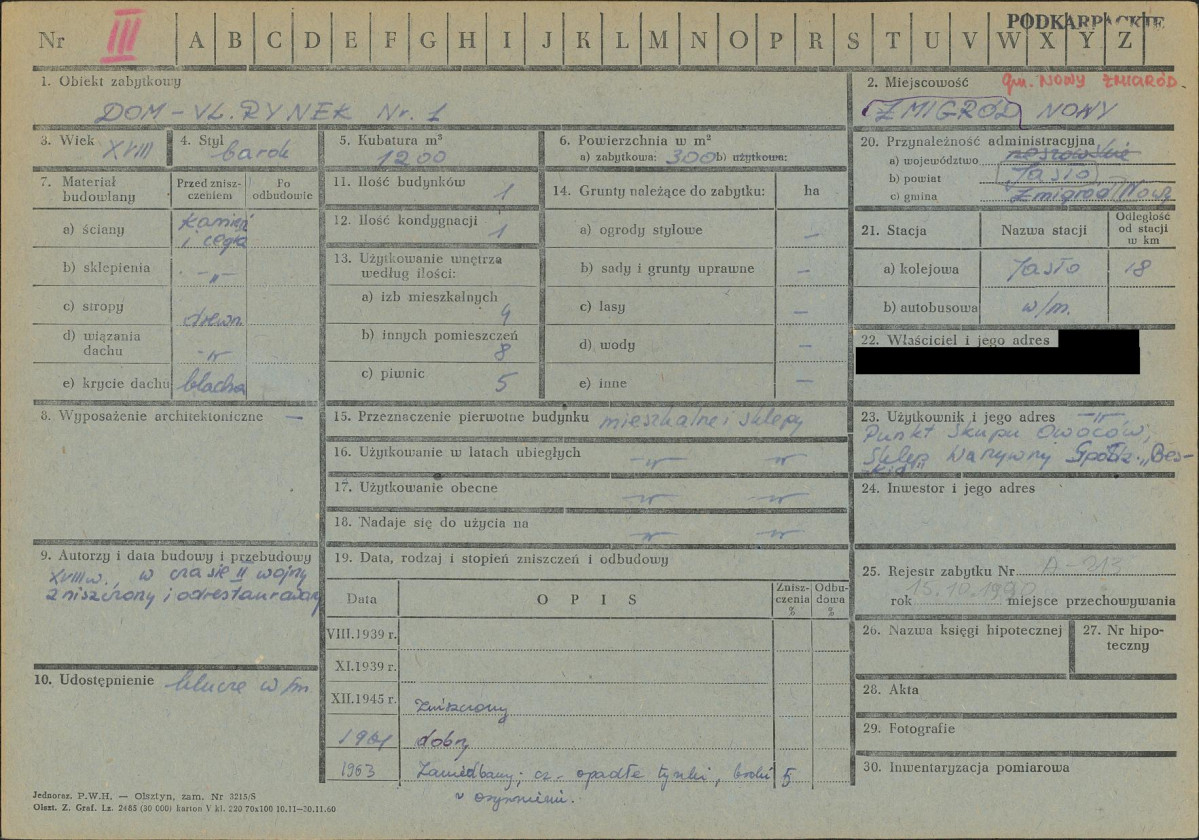 PODKARPACKIE
Nr III A B C D E F G H I J K L M N O P R S T U V W X Y Z
1. Obiekt zabytkowy
DOM - UL. RYNEK Nr. 1
2. Miejscowość gm. NOWY ŻMIGRÓD
ŻMIGRÓD NOWY
3. Wiek XVIII
4. Styl barok
5. Kubatura m³
1200
6. Powierzchnia w m²
a) zabytkowa: 300 b) użytkowa:
20. Przynależność administracyjna
a) województwo rzeszowskie
b) powiat Jasło
c) gmina Żmigród Nowy
7. Materiał budowlany
Przed zniszczeniem
Po odbudowie
a) ściany kamień i cegła
b) sklepienia -"-
c) stropy drewn.
d) wiązania dachu -"-
e) krycie dachu blacha
11. Ilość budynków 1
12. Ilość kondygnacji 1
13. Użytkowanie wnętrza według ilości:
a) izb mieszkalnych 4
b) innych pomieszczeń 8
c) piwnic 5
14. Grunty należące do zabytku: ha
a) ogrody stylowe —
b) sady i grunty uprawne —
c) lasy —
d) wody —
e) inne —
21. Stacja
Nazwa stacji
Odległość od stacji w km
a) kolejowa Jasło 18
b) autobusowa w/m.
22. Właściciel i jego adres
8. Wyposażenie architektoniczne —
15. Przeznaczenie pierwotne budynku mieszkalne i sklepy
16. Użytkowanie w latach ubiegłych -"- -"-
17. Użytkowanie obecne -"- -"-
18. Nadaje się do użycia na -"- -"-
23. Użytkownik i jego adres -"-
Punkt Skupu Owoców,
Sklep Warzywny Spółdz. „Bes-
kid"
24. Inwestor i jego adres
9. Autorzy i data budowy i przebudowy
XVIII w., w czasie II wojny
zniszczony i odrestaurowany
19. Data, rodzaj i stopień zniszczeń i odbudowy
Data
O P I S
Zniszczenia %
Odbudowa %
VIII.1939 r.
XI.1939 r.
XII.1945 r. Zniszczony
1961 dobry
1963 Zaniedbany; cz. opadłe tynki, braki 5
w orynnieniu.
25. Rejestr zabytku Nr A-213
rok 15.10.1990 miejsce przechowywania
26. Nazwa księgi hipotecznej
27. Nr hipoteczny
10. Udostępnienie klucze w/m.
28. Akta
29. Fotografie
30. Inwentaryzacja pomiarowa
Jednoraz. P.W.H. — Olsztyn, zam. Nr 3215/S
Olszt. Z. Graf. Lz. 2485 (30 000) karton V kl. 220 70x100 10.11—20.11.60